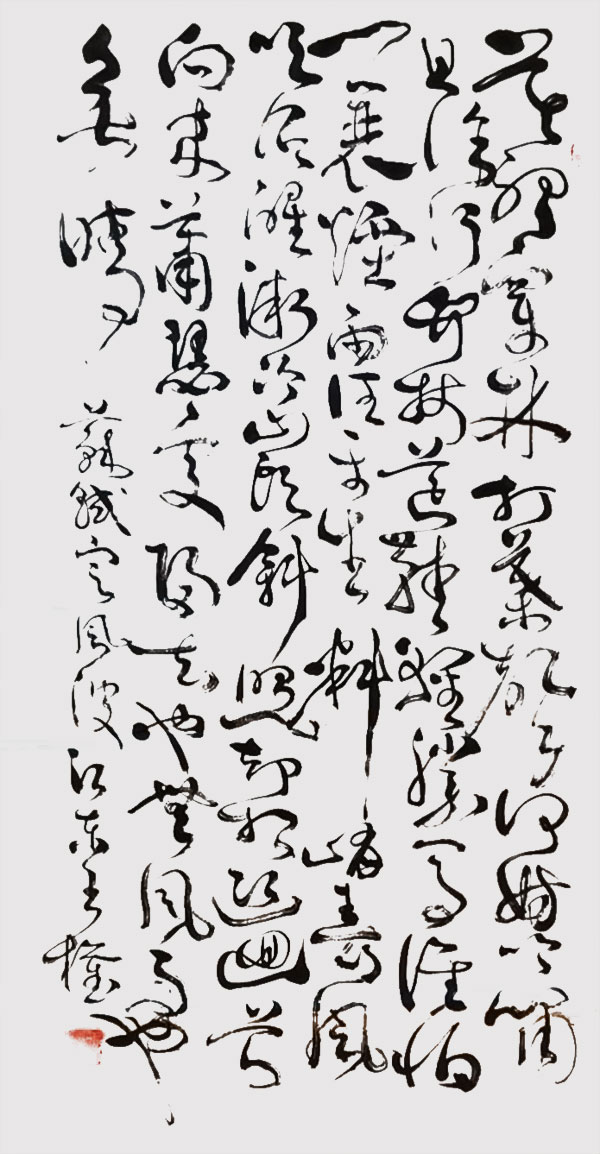 莫聽穿林打葉聲何妨吟嘯
且徐行竹杖芒鞋輕勝馬誰怕
一蓑煙雨任平生料峭春風
吹酒醒微冷山頭斜照却相迎迴首
向來蕭瑟處歸去也無風雨也
無晴 蘇軾定風波 江東